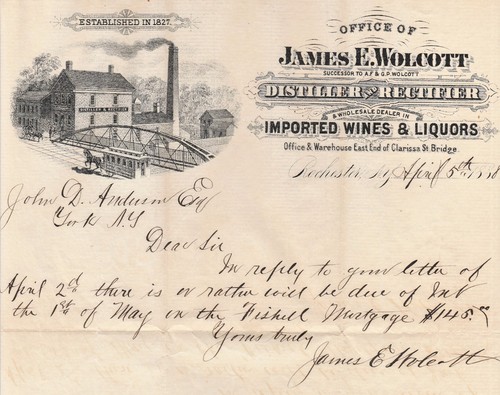 ESTABLISHED IN 1827.
DISTILLER & RECTIFIER
OFFICE OF
JAMES E. WOLCOTT
SUCCESSOR TO A.F & G.P. WOLCOTT
DISTILLER AND RECTIFIER
& WHOLESALE DEALER IN
IMPORTED WINES & LIQUORS
Office & Warehouse East End of Clarissa St. Bridge.
Rochester, N.Y. April 5th, 188
John D. Anderson Esq
York N.Y
Dear Sir
In reply to your letter of
April 2nd there is or rather will be due of Int
the 1st of May on the Fishell Mortgage $145.00
Yours truly
James E Wolcott